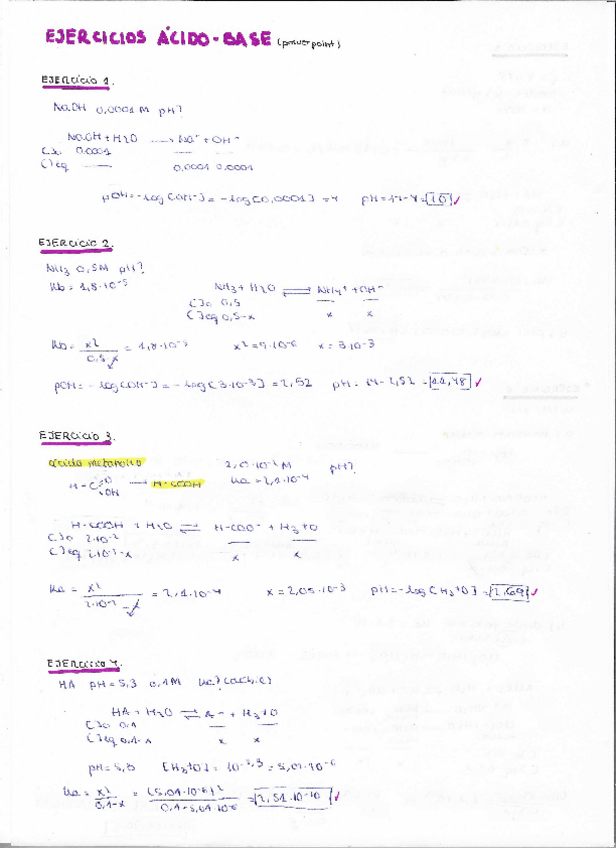 EJERCICIOS ÁCIDO-BASE (powerpoint)
EJERCICIO 1.
NaOH 0,0001 M pH?
NaOH + H2O → Na+ + OH-
C)o 0,0001 — —
C)eq — 0,0001 0,0001
pOH = -log [OH-] = -log [0,0001] = 4 pH = 14-4 = 10 ✓
EJERCICIO 2.
NH3 0,5M pH?
Kb = 1,8·10-5
NH3 + H2O ⇌ NH4+ + OH-
C)o 0,5 — —
C)eq 0,5-x x x
Kb = x2 / 0,5-x = 1,8·10-5 x2 = 9·10-6 x = 3·10-3
pOH = -log [OH-] = -log [3·10-3] = 2,52 pH = 14-2,52 = 11,48 ✓
EJERCICIO 3.
ácido metanoico 2,0·10-2 M pH?
H-C=O OH → H-COOH Ka = 2,1·10-4
H-COOH + H2O ⇌ H-COO- + H3+O
C)o 2·10-2 — —
C)eq 2·10-2-x x x
Ka = x2 / 2·10-2-x = 2,1·10-4 x = 2,05·10-3 pH = -log [H3+O] = 2,69 ✓
EJERCICIO 4.
HA pH = 5,3 0,1M Ka?
HA + H2O ⇌ A- + H3+O
C)o 0,1 — —
C)eq 0,1-x x x
pH = 5,3 [H3+O] = 10-5,3 = 5,01·10-6
Ka = x2 / 0,1-x = (5,01·10-6)2 / 0,1-5,01·10-6 = 2,51·10-10 ✓